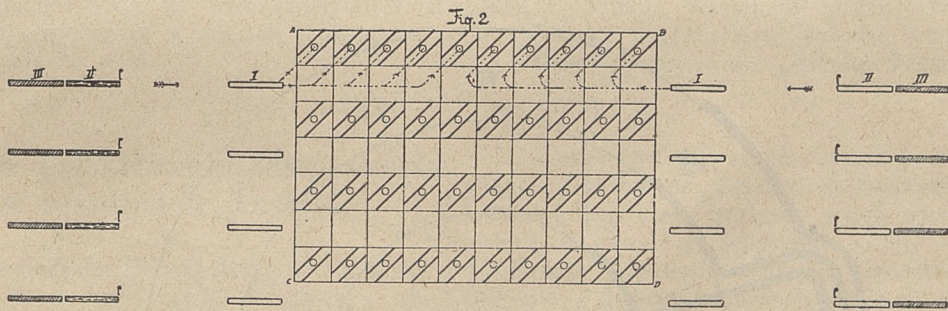 Fig. 2
A B
III II I I II III
C D